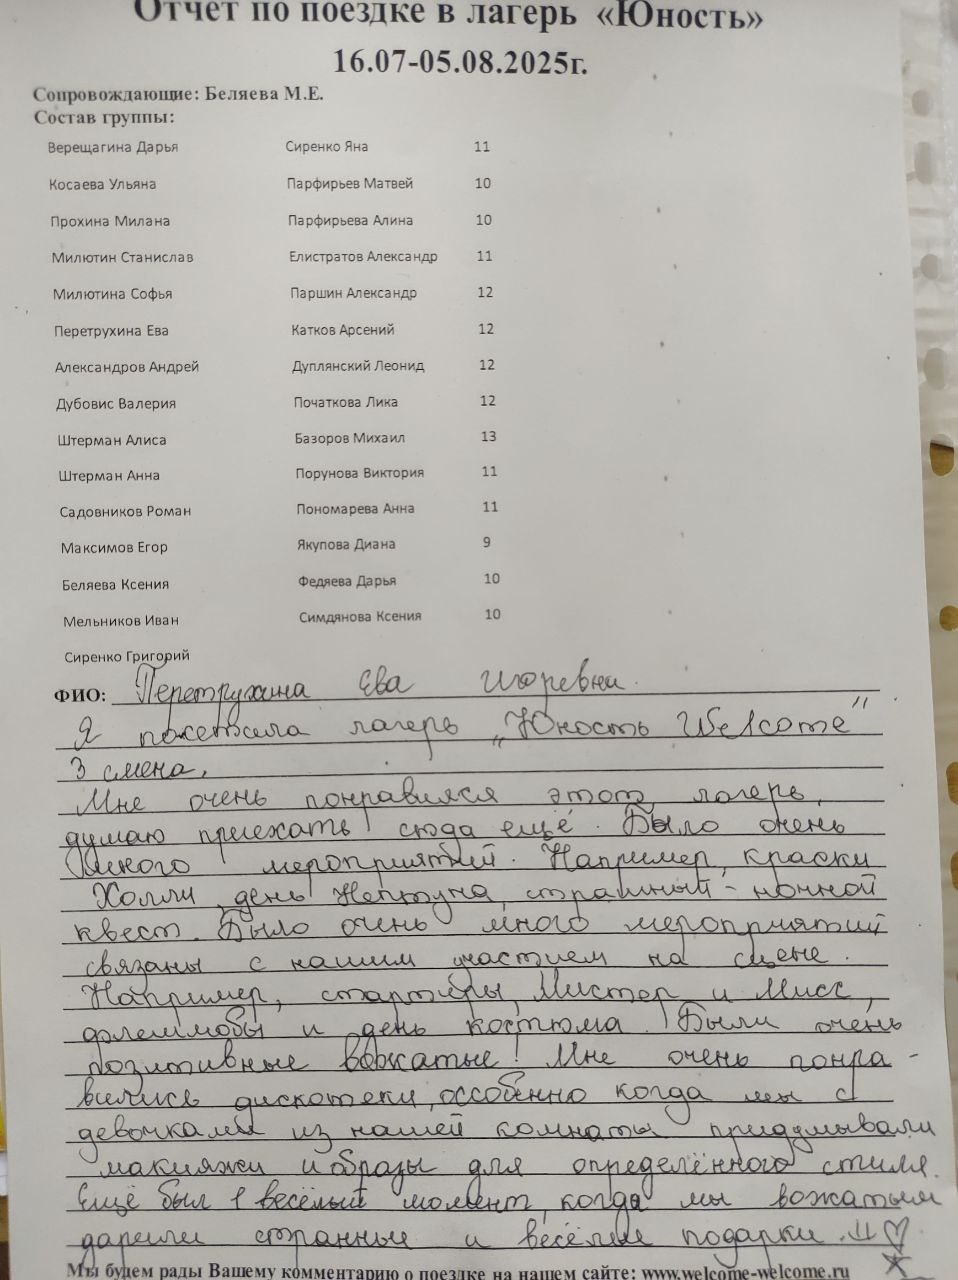 Отчет по поездке в лагерь «Юность»
16.07-05.08.2025г.
Сопровождающие: Беляева М.Е.
Состав группы:
Верещагина Дарья Сиренко Яна 11
Косаева Ульяна Парфирьев Матвей 10
Прохина Милана Парфирьева Алина 10
Милютин Станислав Елистратов Александр 11
Милютина Софья Паршин Александр 12
Перетрухина Ева Катков Арсений 12
Александров Андрей Дуплянский Леонид 12
Дубовис Валерия Початкова Лика 12
Штерман Алиса Базоров Михаил 13
Штерман Анна Порунова Виктория 11
Садовников Роман Пономарева Анна 11
Максимов Егор Якупова Диана 9
Беляева Ксения Федяева Дарья 10
Мельников Иван Симдянова Ксения 10
Сиренко Григорий
ФИО: Перетрухина Ева Игоревна.
Я посетила лагерь „Юность Welcome"
3 смена.
Мне очень понравился этот лагерь,
думаю приехать сюда ещё. Было очень
много мероприятий. Например, краски
Холли, день Нептуна, страшный - ночной
квест. Было очень много мероприятий
связаны с нашим участием на сцене.
Например, стартиры, Мистер и Мисс,
флешмобы и день костюма. Были очень
позитивные вожатые! Мне очень понра-
вились дискотеки, оссобенно когда мы с
девочками из нашей комнаты придумывали
макияжи и образы для определённого стиля.
Ещё был 1 весёлый момент, когда мы вожатым
дарили странные и весёлые подарки.
Мы будем рады Вашему комментарию о поездке на нашем сайте: www.welcome-welcome.ru